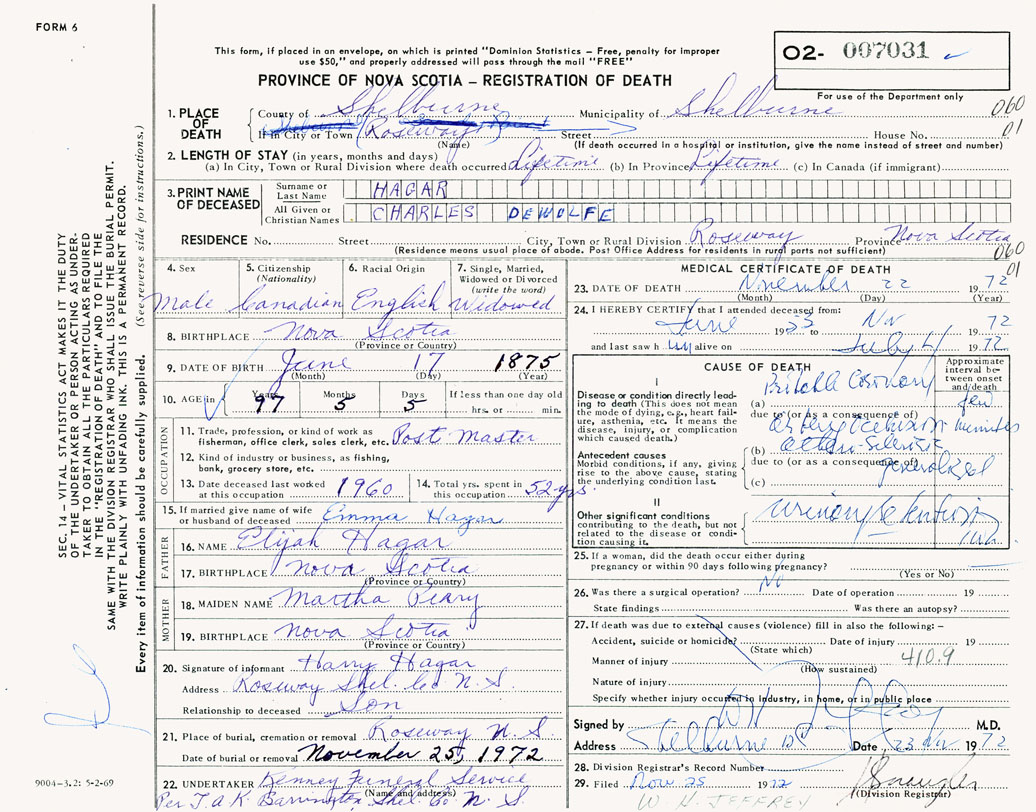 FORM 6
This form, if placed in an envelope, on which is printed "Dominion Statistics – Free, penalty for improper
use $50," and properly addressed will pass through the mail "FREE"
PROVINCE OF NOVA SCOTIA – REGISTRATION OF DEATH
O2- 007031
For use of the Department only
060
01
1. PLACE OF DEATH { County of Shelburne Municipality of Shelburne
If in City or Town Roseway Street House No.
(Name) (If death occurred in a hospital or institution, give the name instead of street and number)
2. LENGTH OF STAY (in years, months and days)
(a) In City, Town or Rural Division where death occurred Lifetime (b) In Province Lifetime (c) In Canada (if immigrant)
3. PRINT NAME OF DECEASED
Surname or Last Name HAGAR
All Given or Christian Names CHARLES DEWOLFE
RESIDENCE No. Street City, Town or Rural Division Roseway Province Nova Scotia
(Residence means usual place of abode. Post Office Address for residents in rural parts not sufficient)
060
01
4. Sex 5. Citizenship (Nationality) 6. Racial Origin 7. Single, Married, Widowed or Divorced (write the word)
Male Canadian English Widowed
8. BIRTHPLACE Nova Scotia
(Province or Country)
9. DATE OF BIRTH June 17 1875
(Month) (Day) (Year)
10. AGE in Years Months Days If less than one day old
97 5 5 hrs. or min.
OCCUPATION
11. Trade, profession, or kind of work as
fisherman, office clerk, sales clerk, etc. Post Master
12. Kind of industry or business, as fishing,
bank, grocery store, etc.
13. Date deceased last worked at this occupation 1960 14. Total yrs. spent in this occupation 52 yrs.
15. If married give name of wife or husband of deceased Emma Hagar
FATHER
16. NAME Elijah Hagar
17. BIRTHPLACE Nova Scotia
(Province or Country)
MOTHER
18. MAIDEN NAME Martha Perry
19. BIRTHPLACE Nova Scotia
(Province or Country)
20. Signature of informant Harry Hagar
Address Roseway Shel. Co N.S.
Relationship to deceased Son
21. Place of burial, cremation or removal Roseway N.S.
Date of burial or removal November 25, 1972
22. UNDERTAKER Kenney Funeral Service
(Name and address)
Per T.a K. Barrington Shel. Co. N.S.
MEDICAL CERTIFICATE OF DEATH
23. DATE OF DEATH November 22 1972
(Month) (Day) (Year)
24. I HEREBY CERTIFY that I attended deceased from:
June 1953 to Nov 1972
and last saw him alive on July 4 1972
CAUSE OF DEATH
Approximate interval between onset and/death
I
Disease or condition directly leading to death (This does not mean the mode of dying, e.g., heart failure, asthenia, etc. It means the disease, injury, or complication which caused death.)
(a) Coronary few minutes
due to (or as a consequence of)
Antecedent causes
Morbid conditions, if any, giving rise to the above cause, stating the underlying condition last.
(b)
due to (or as a consequence of)
(c)
II
Other significant conditions contributing to the death, but not related to the disease or condition causing it. Urinary
25. If a woman, did the death occur either during
pregnancy or within 90 days following pregnancy?
(Yes or No)
26. Was there a surgical operation? No Date of operation 19
State findings Was there an autopsy?
27. If death was due to external causes (violence) fill in also the following: –
Accident, suicide or homicide? Date of injury 19
(State which)
Manner of injury 410.9
(How sustained)
Nature of injury
Specify whether injury occurred in industry, in home, or in public place
Signed by M.D.
Address Shelburne NS Date 23 Nov 1972
28. Division Registrar's Record Number
29. Filed Nov 25 1972
(Division Registrar)
W. H. JEFFREY
SEC. 14 – VITAL STATISTICS ACT MAKES IT THE DUTY
OF THE UNDERTAKER OR PERSON ACTING AS UNDER-
TAKER TO OBTAIN ALL THE PARTICULARS REQUIRED
IN THE "REGISTRATION OF DEATH" AND TO FILE THE
SAME WITH THE DIVISION REGISTRAR WHO SHALL ISSUE THE BURIAL PERMIT.
WRITE PLAINLY WITH UNFADING INK. THIS IS A PERMANENT RECORD.
Every item of information should be carefully supplied. (See reverse side for instructions.)
9004-3.2: 5-2-69